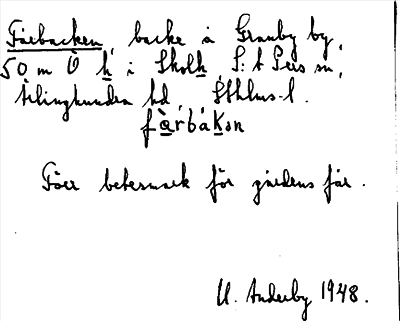 Fårbacken, backe å Granby by,
50 m Ö h i Skolh, S:t Pers sn,
Ärlinghundra hd, Sthlms l.
fàrbákən
Förr betesmark för gårdens får.
U. Anderby 1948.